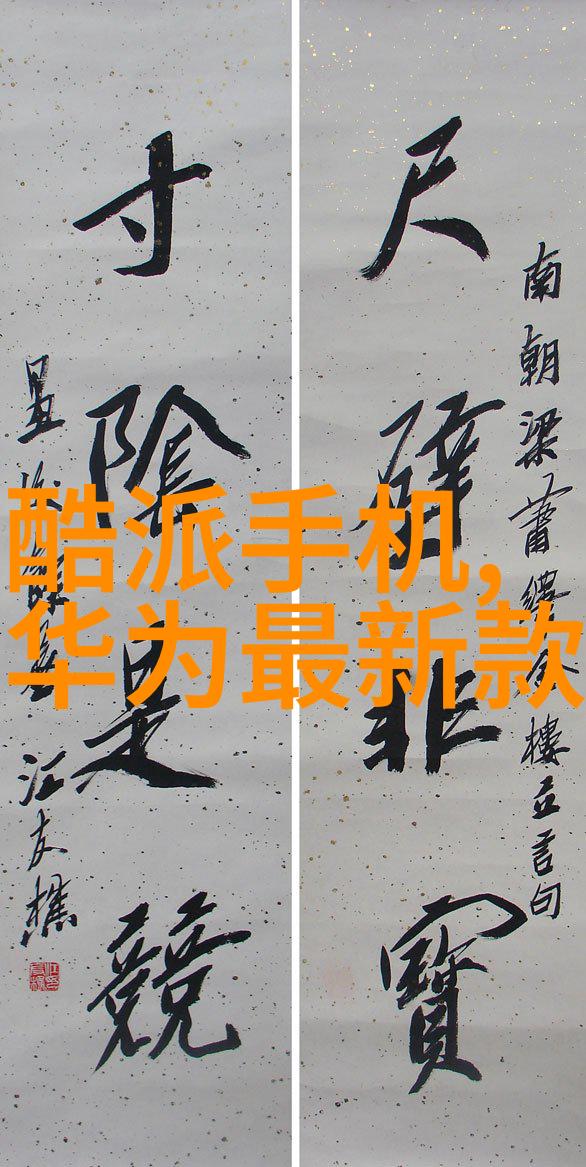 尺璧非寶
南朝梁蕭繹金樓立言句
寸陰是競
汪友樵
酷派手机,
华为最新款